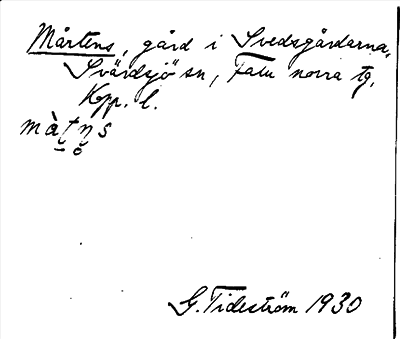 Mårtens, gård i Svedsgårdarna,
Svärdsjö sn, Falu norra tg,
Kopp. l.
màtṇs
G. Tideström 1930